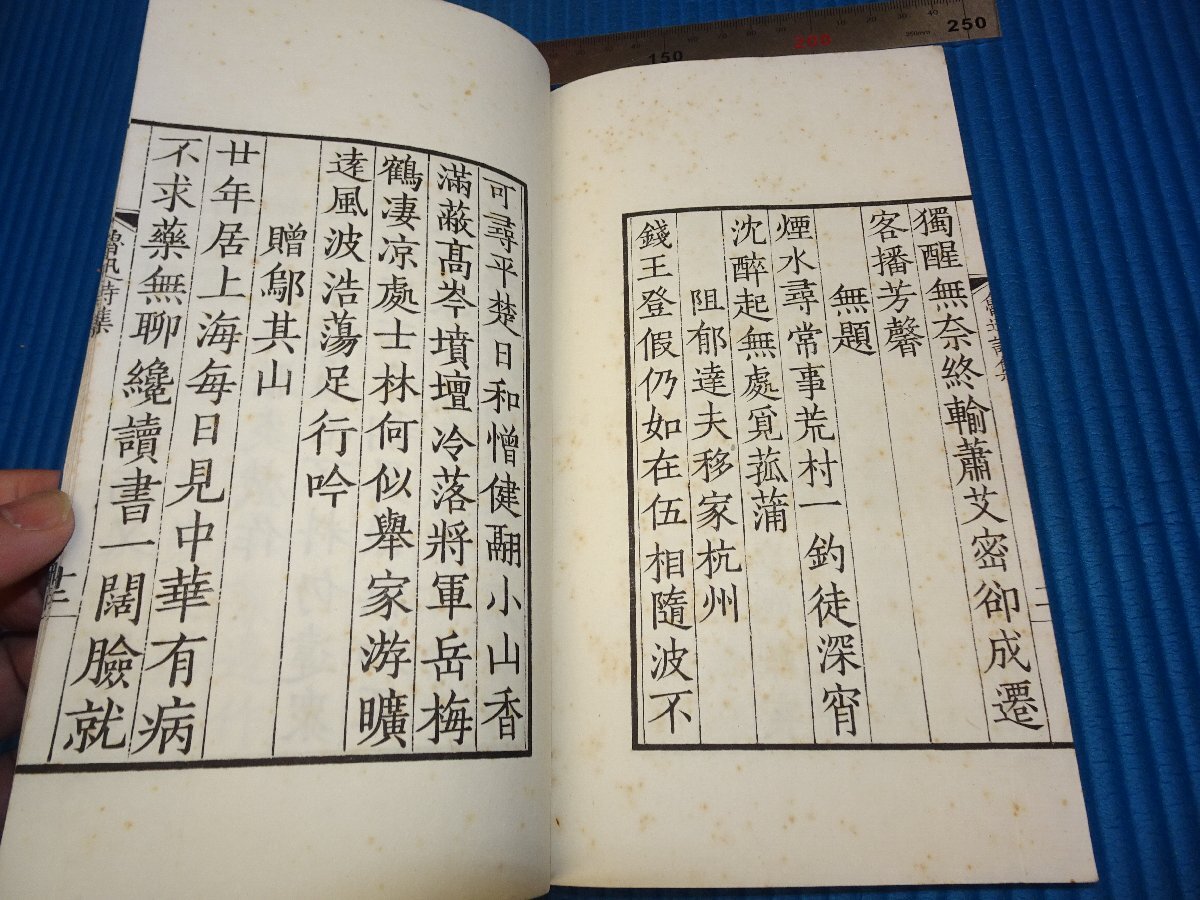 獨醒無奈終輸蕭艾密卻成遷
客播芳馨
無題
煙水尋常事荒村一釣徒深宵
沈醉起無處覓菰蒲
阻郁達夫移家杭州
錢王登假仍如在伍相隨波不
可尋平楚日和憎健翮小山香
滿蔽高岑墳壇冷落將軍岳梅
鶴凄涼處士林何似舉家游曠
遠風波浩蕩足行吟
贈鄔其山
廿年居上海每日見中華有病
不求藥無聊纔讀書一闊臉就
魯迅詩集
150
250